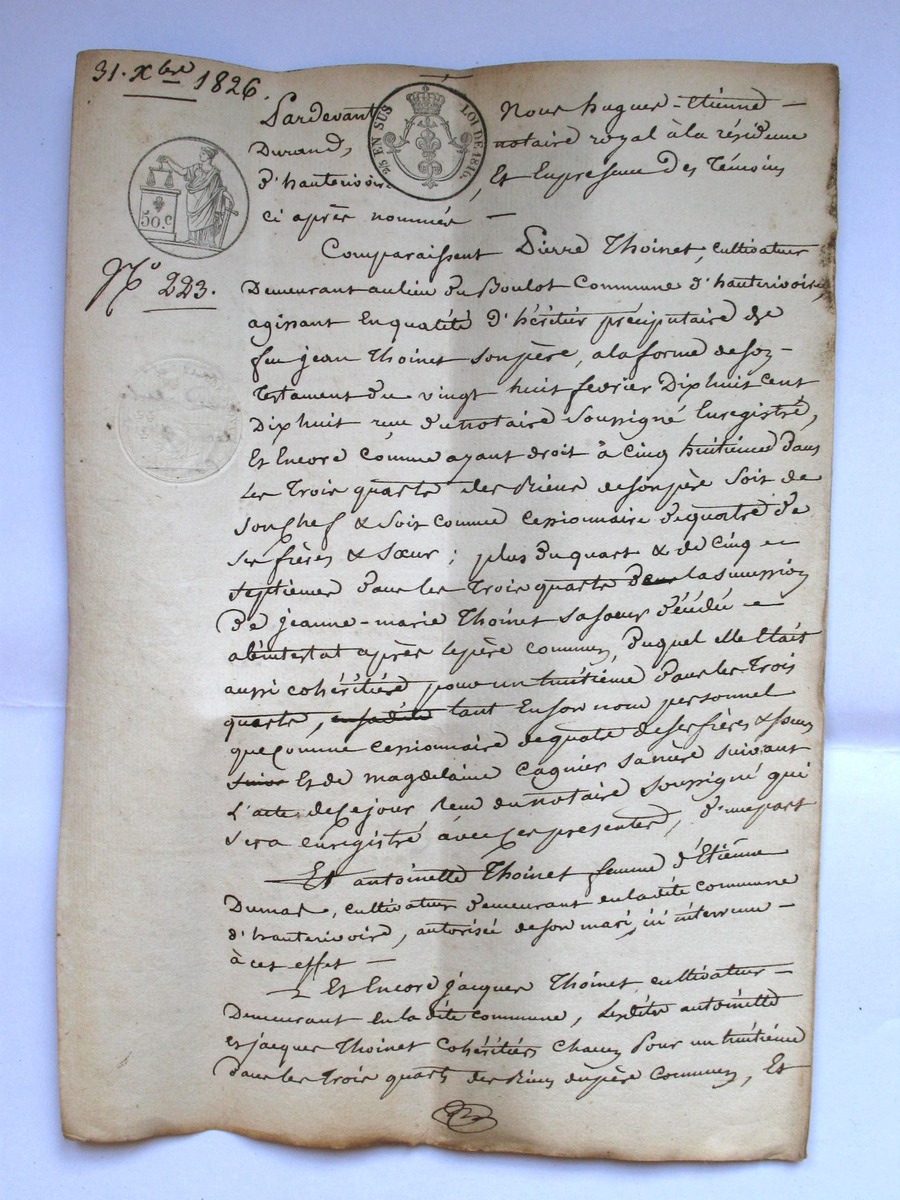 31. Xbre 1826.
Pardevant Nous hugues-Etienne
2/5 EN SUS LOI DE 1816.
Durand, notaire royal à la résidence
d'hauterivoire, Et En presence des Témoins
ci après nommés
50.c
Comparaissent Pierre Thoinet, cultivateur
No 223.
Demeurant au lieu du Boulot Commune d'hauterivoire,
agissant En qualité d'héritier préciputaire de
feu jean Thoinet son père, a la forme de son
Testament du vingt huit fevrier Dix huit cent
Dix huit reçu du notaire soussigné Enregistré,
Et Encore comme ayant droit à cinq huitiemes dans
Les Trois quarts des Biens de son père soit de
son Chef & soit comme cessionnaire de quatre de
ses frères & sœur ; plus du quart & de cinq
septiemes dans les Trois quarts de la succession
De jeanne-marie Thoinet sa sœur décédée
abintestat après le père commun, duquel elle Etait
aussi cohéritière pour un huitième dans les Trois
quarts, tant En son nom personnel
que comme cessionnaire de quatre de ses frères & sœur
Et de magdelaine Cagnier sa mère suivant
L'acte de ce jour Reçu du notaire soussigné qui
sera enregistré avec ces presentes, d'une part
Et antoinette Thoinet femme d'Etienne
Dumas, cultivateur demeurant en la dite commune
d'hauterivoire, autorisée de son mari, ici intervenu
à cet effet —
Et Encore jacques Thoinet cultivateur
Demeurant En la dite commune, Lesdits antoinette
et jacques Thoinet cohéritiers chacun Pour un huitième
Dans les Trois quarts des Biens du père commun, Et